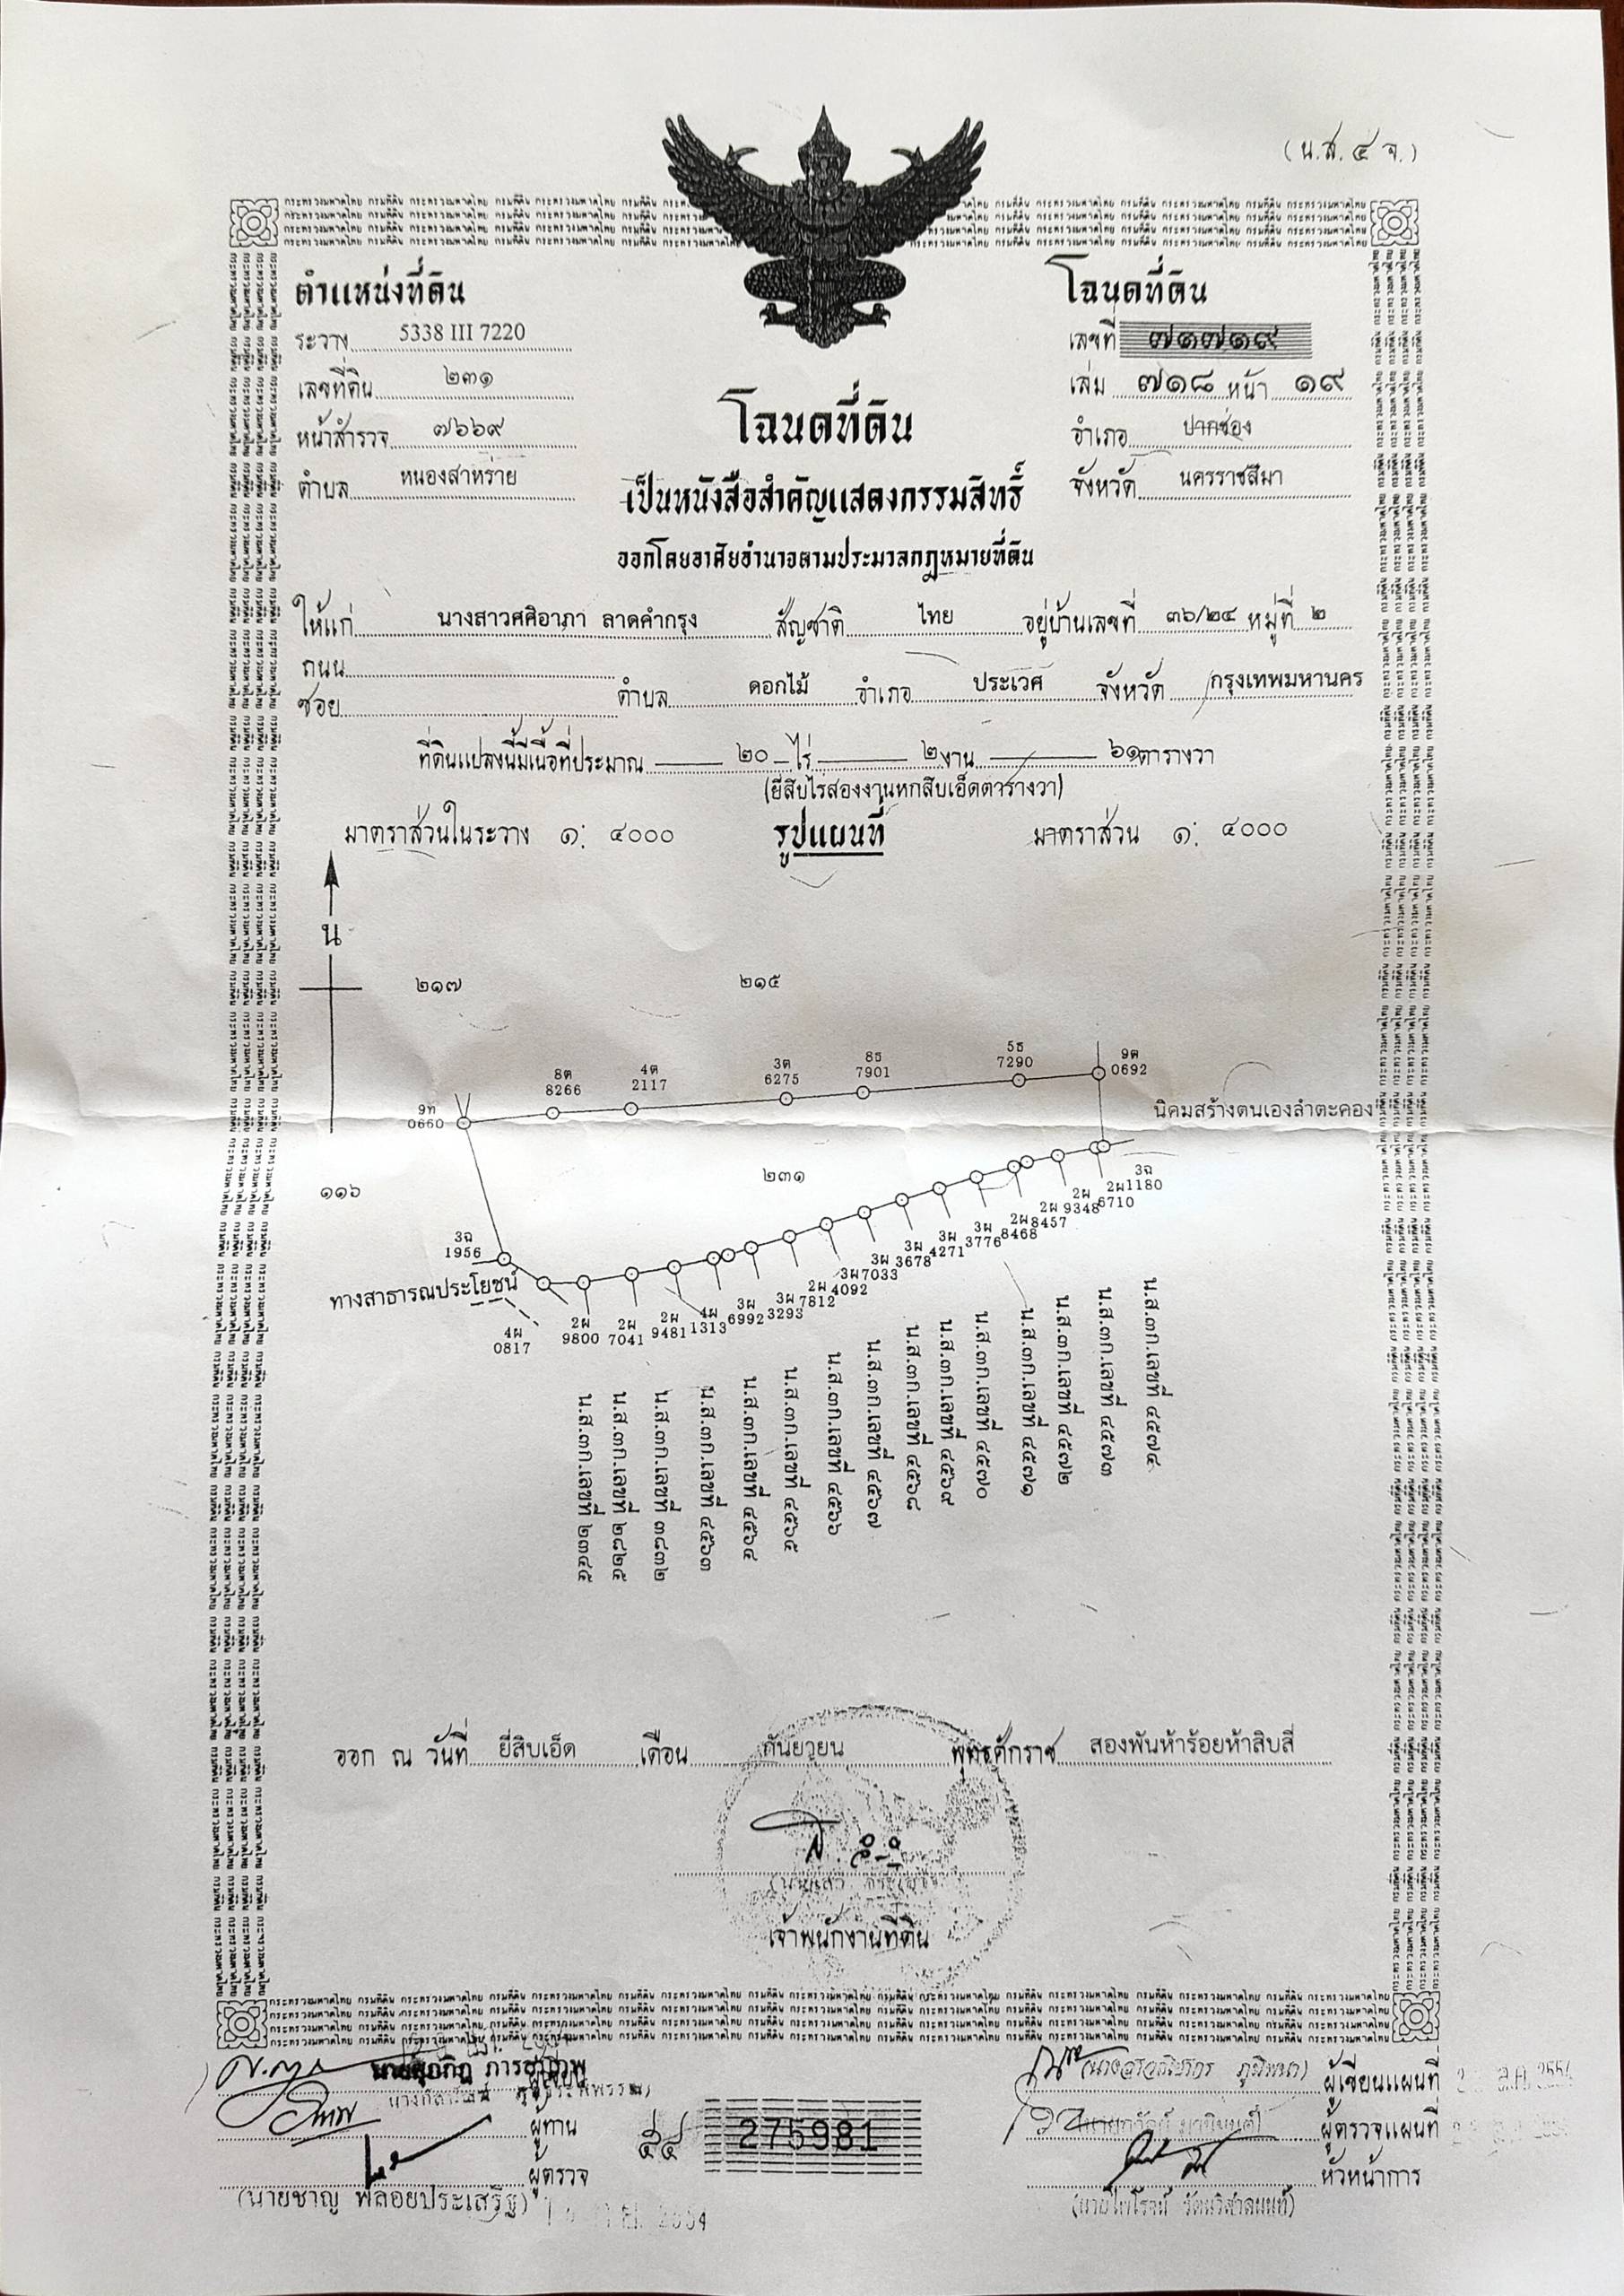 (น.ส. ๔ จ.)
ตำแหน่งที่ดิน
ระวาง 5338 III 7220
เลขที่ดิน ๒๓๑
หน้าสำรวจ ๗๖๖๙
ตำบล หนองสาหร่าย
โฉนดที่ดิน
เลขที่ ๗๑๗๑๙
เล่ม ๗๑๘ หน้า ๑๙
อำเภอ ปากช่อง
จังหวัด นครราชสีมา
โฉนดที่ดิน
เป็นหนังสือสำคัญแสดงกรรมสิทธิ์
ออกโดยอาศัยอำนาจตามประมวลกฎหมายที่ดิน
ให้แก่ นางสาวศศิอาภา ลาดคำกรุง สัญชาติ ไทย อยู่บ้านเลขที่ ๓๖/๒๔ หมู่ที่ ๒
ถนน
ซอย ตำบล ดอกไม้ อำเภอ ประเวศ จังหวัด กรุงเทพมหานคร
ที่ดินแปลงนี้มีเนื้อที่ประมาณ ๒๐ ไร่ ๒ งาน ๖๑ ตารางวา
(ยี่สิบไร่สองงานหกสิบเอ็ดตารางวา)
มาตราส่วนในระวาง ๑: ๔๐๐๐ รูปแผนที่ มาตราส่วน ๑: ๔๐๐๐
น
๒๑๗ ๒๑๕
9ท 0660
8ต 8266
4ต 2117
3ต 6275
8ธ 7901
5ธ 7290
9ต 0692
นิคมสร้างตนเองลำตะคอง
๒๓๑
๑๑๖
3ฉ 1956
ทางสาธารณประโยชน์
4ผ 0817
2ผ 9800
2ผ 7041
2ผ 9481
4ผ 1313
3ผ 6992
3ผ 3293
2ผ 7812
3ผ 4092
3ผ 7033
3ผ 3678
3ผ 4271
3ผ 3776
2ผ 8468
2ผ 8457
2ผ 9348
2ผ 6710
3ฉ 1180
น.ส.๓ก.เลขที่ ๒๓๔๕
น.ส.๓ก.เลขที่ ๒๘๒๕
น.ส.๓ก.เลขที่ ๓๘๓๒
น.ส.๓ก.เลขที่ ๔๕๖๓
น.ส.๓ก.เลขที่ ๔๕๖๔
น.ส.๓ก.เลขที่ ๔๕๖๕
น.ส.๓ก.เลขที่ ๔๕๖๖
น.ส.๓ก.เลขที่ ๔๕๖๗
น.ส.๓ก.เลขที่ ๔๕๖๘
น.ส.๓ก.เลขที่ ๔๕๖๙
น.ส.๓ก.เลขที่ ๔๕๗๐
น.ส.๓ก.เลขที่ ๔๕๗๑
น.ส.๓ก.เลขที่ ๔๕๗๒
น.ส.๓ก.เลขที่ ๔๕๗๓
น.ส.๓ก.เลขที่ ๔๕๗๔
ออก ณ วันที่ ยี่สิบเอ็ด เดือน กันยายน พุทธศักราช สองพันห้าร้อยห้าสิบสี่
เจ้าพนักงานที่ดิน
ผู้เขียนแผนที่
ผู้ทาน
ผู้ตรวจแผนที่
๕๔ 275981
ผู้ตรวจ
หัวหน้าการ
(นายชาญ พลอยประเสริฐ)
(นายไพโรจน์ รัตนวิศาลนนท์)